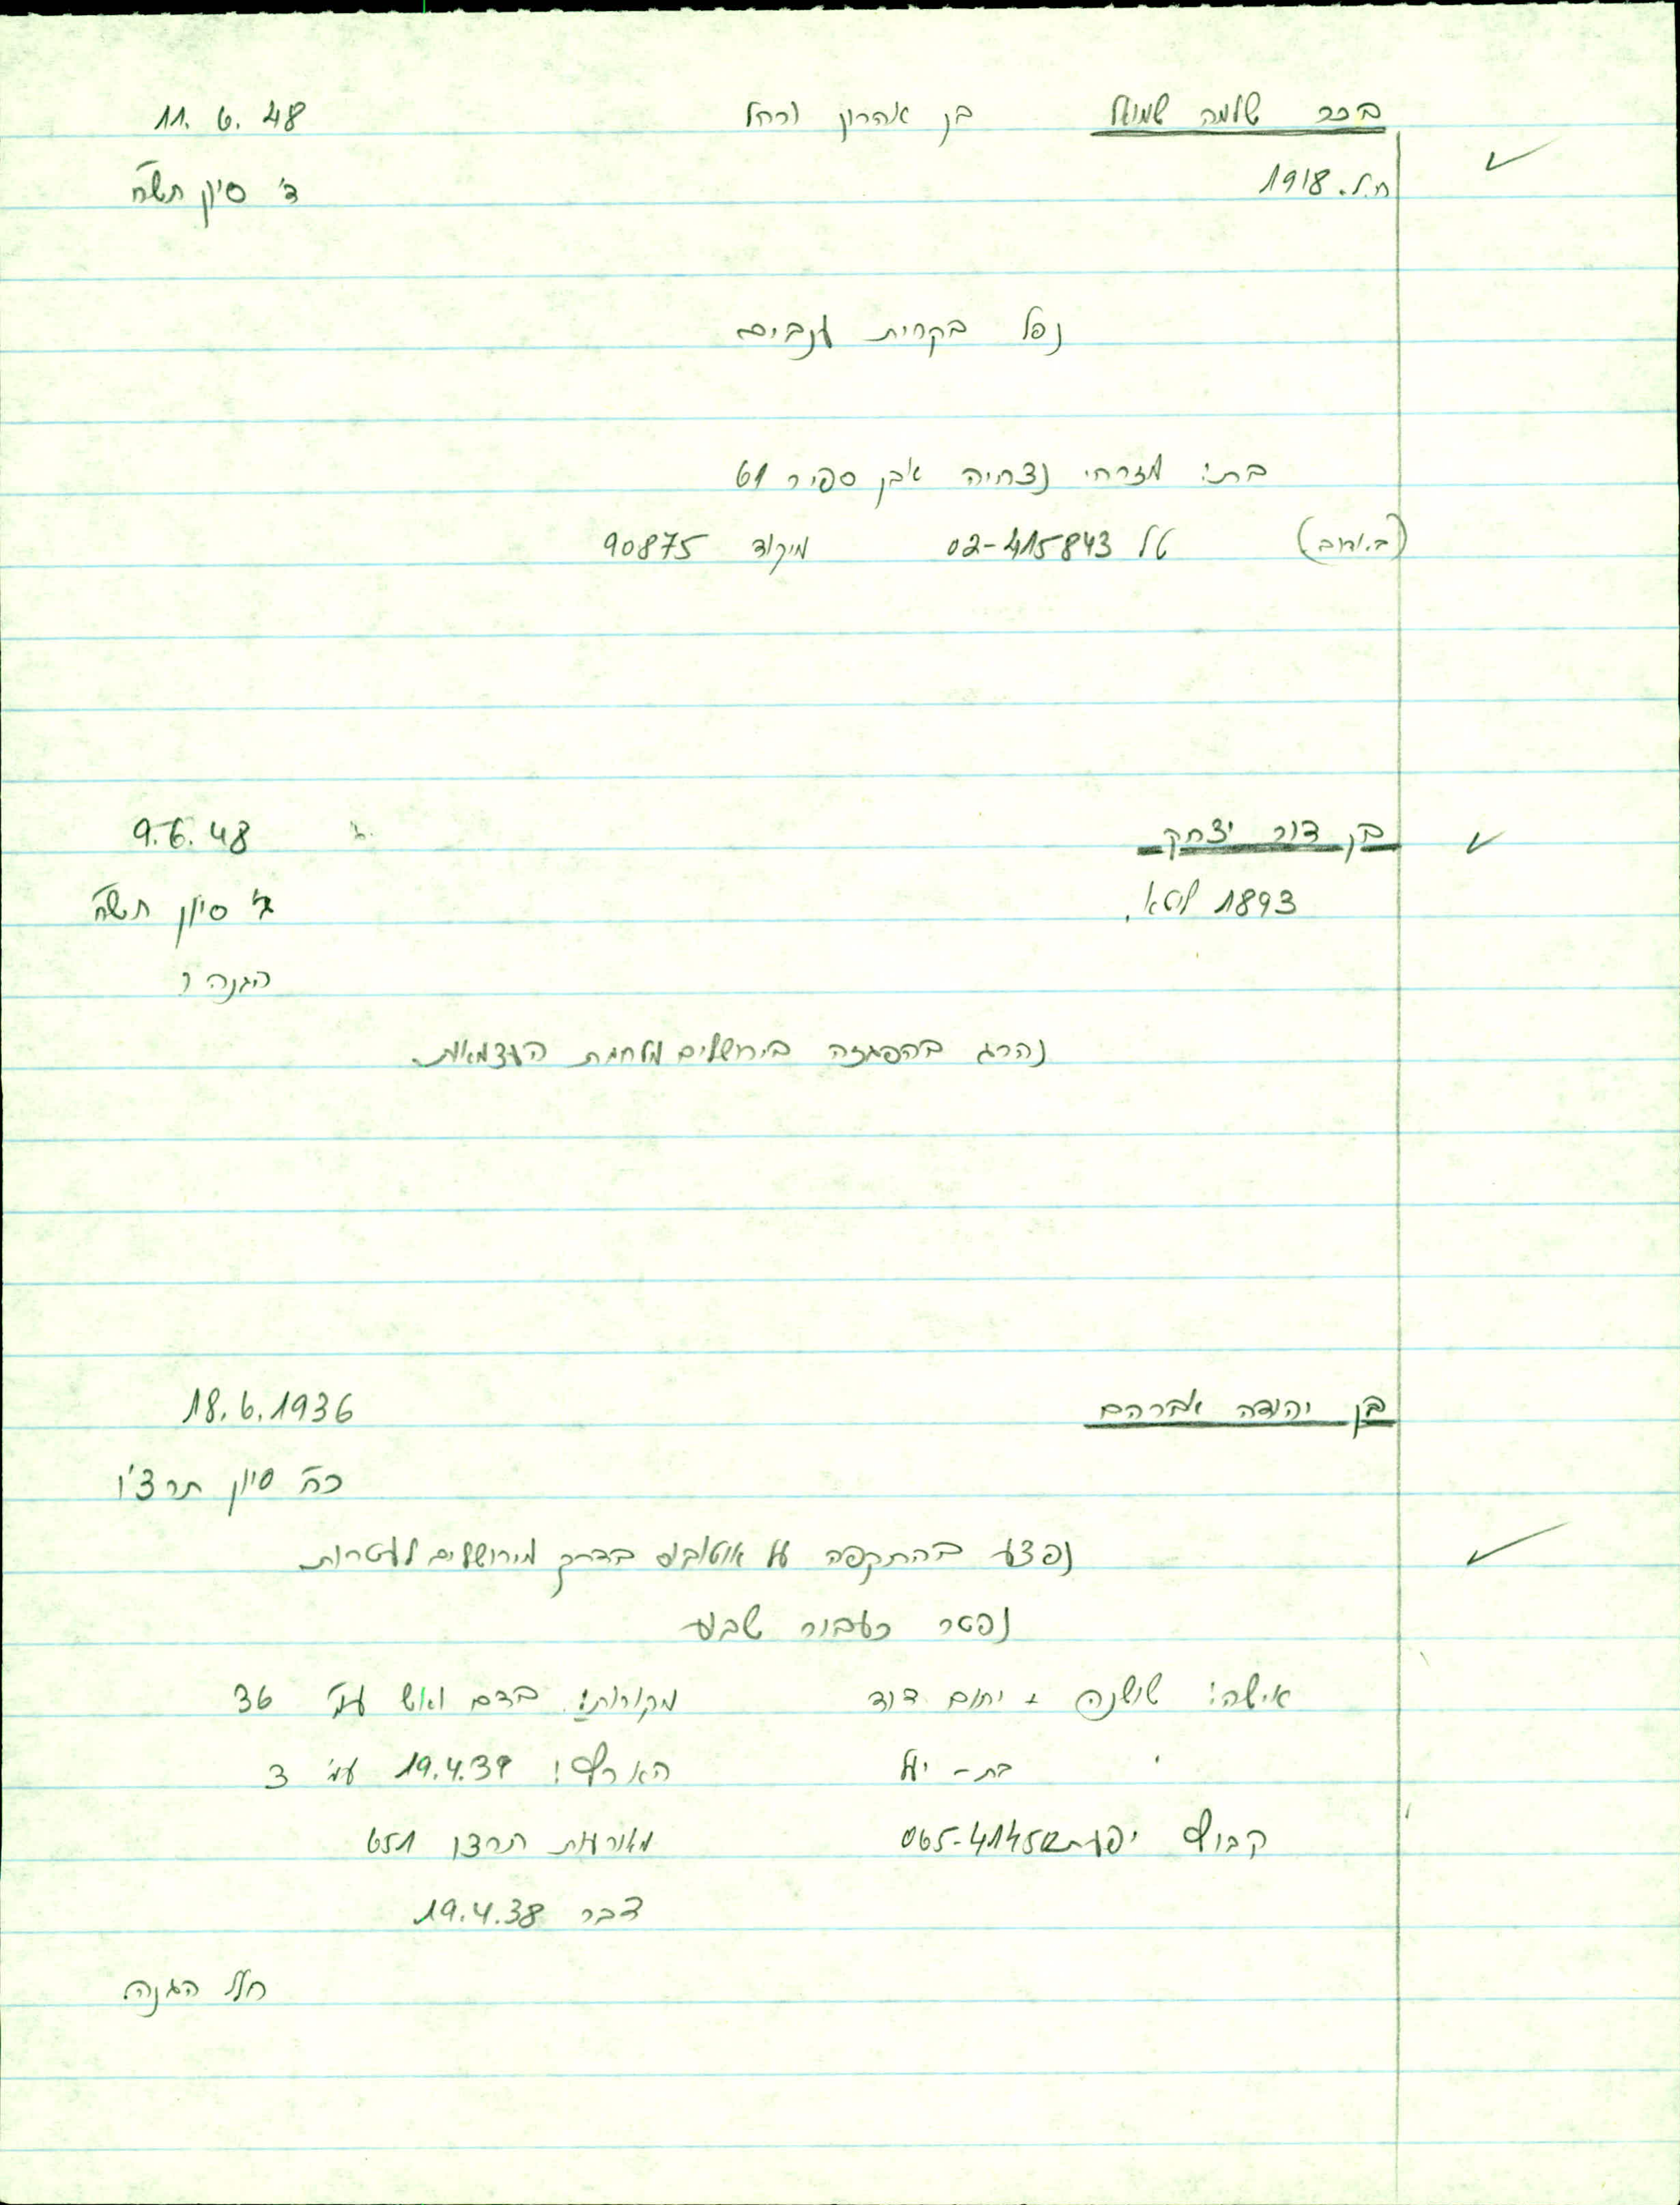 בכר שלמה שמואל בן אהרון ורחל 11.6.48
ח.ל. 1918 ד' סיון תש"ח
נפל בקרית ענבים
בת: מזרחי נצחיה אבן ספיר 61
טל 02-415843 מיקוד 90875
בן דור יצחק 9.6.48
1893 ליטא. ב' סיון תש"ח
הגנה
נהרג בהפגזה בירושלים מלחמת העצמאות.
בן יהודה אברהם 18.6.1936
כ"ח סיון תרצ"ו
נפצע בהתקפה על אוטובוס בדרך מירושלים לעטרות
נפטר כעבור שבוע
אישה: שושנה + יתום דוד מקורות: בדם ואש עמ' 36
בת - יעל הארץ: 19.4.39 עמ' 3
קבוץ יפעת 065-41452 מאורעות תרצו 651
דבר 19.4.38
חלל הגנה.